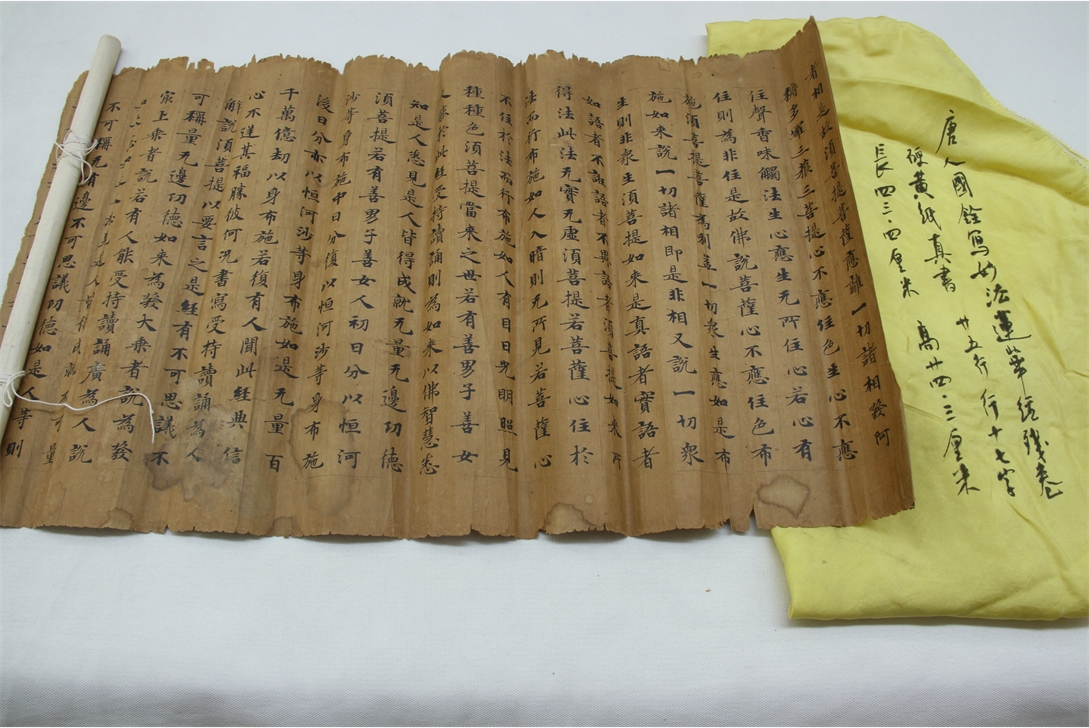 唐人國詮寫妙法蓮華經殘卷
硬黃紙真書 廿五行 行十七字
長四三.四厘米 高廿四.三厘米
者相是故須菩提菩薩應離一切諸相發阿
耨多羅三藐三菩提心不應住色生心不應
住聲香味觸法生心應生无所住心若心有
住則為非住是故佛說菩薩心不應住色布
施須菩提菩薩為利益一切眾生應如是布
施如來說一切諸相即是非相又說一切眾
生則非眾生須菩提如來是真語者實語者
如語者不誑語者不異語者須菩提如來所
得法此法无實无虛須菩提若菩薩心住於
法而行布施如人入暗則无所見若菩薩心
不住於法而行布施如人有目日光明照見
種種色須菩提當來之世若有善男子善女
人能於此經受持讀誦則為如來以佛智慧悉
知是人悉見是人皆得成就无量无邊功德
須菩提若有善男子善女人初日分以恒河
沙等身布施中日分復以恒河沙等身布施
後日分亦以恒河沙等身布施如是无量百
千萬億劫以身布施若復有人聞此經典信
心不逆其福勝彼何況書寫受持讀誦為人
解說須菩提以要言之是經有不可思議不
可稱量无邊功德如來為發大乘者說為發
最上乘者說若有人能受持讀誦廣為人說
可量
不可稱无有邊不可思議功德如是人等則